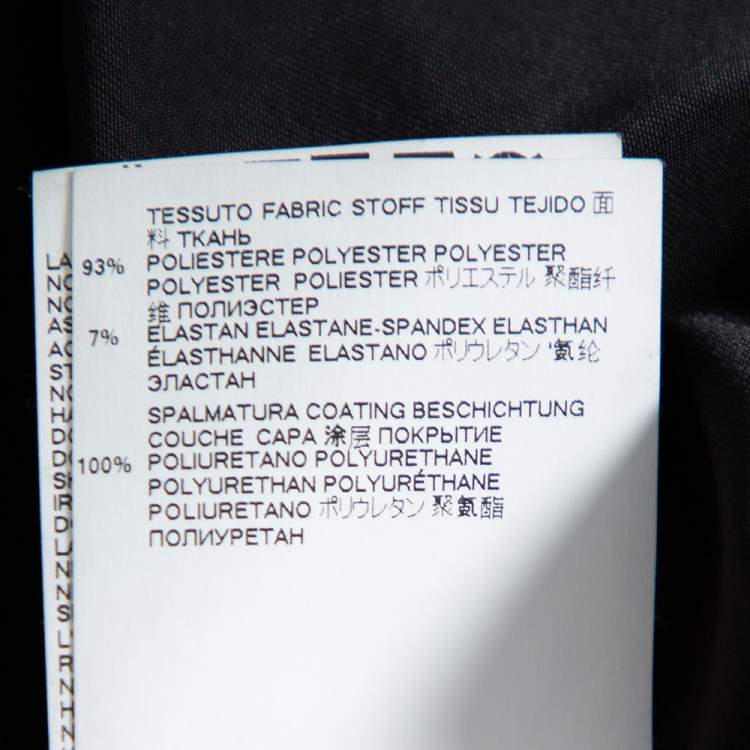 TESSUTO FABRIC STOFF TISSU TEJIDO 面
料 ТКАНЬ
93% POLIESTERE POLYESTER POLYESTER
POLYESTER POLIESTER ポリエステル 聚酯纤
维 ПОЛИЭСТЕР
7% ELASTAN ELASTANE-SPANDEX ELASTHAN
ÉLASTHANNE ELASTANO ポリウレタン '氨纶
ЭЛАСТАН
SPALMATURA COATING BESCHICHTUNG
COUCHE CAPA 涂层 ПОКРЫТИЕ
100% POLIURETANO POLYURETHANE
POLYURETHAN POLYURÉTHANE
POLIURETANO ポリウレタン 聚氨酯
ПОЛИУРЕТАН